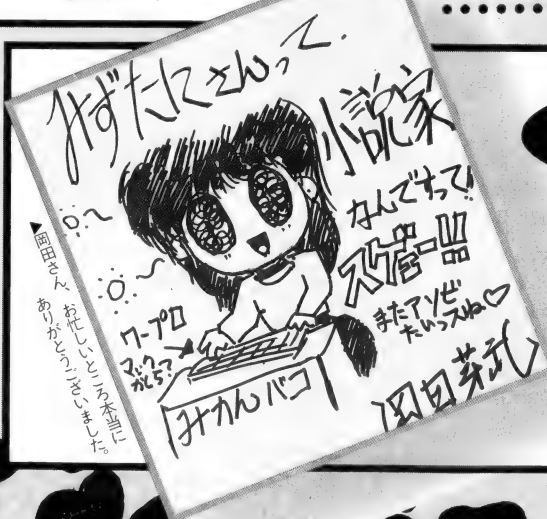 みずたにさんって、
小説家
なんですって!
スゲェー!!!
またアソビ
たいっスね♡
岡田芽武
ワープロ
マックかしら?
みかんバコ
▶岡田さん、お忙しいところ本当に
ありがとうございました。